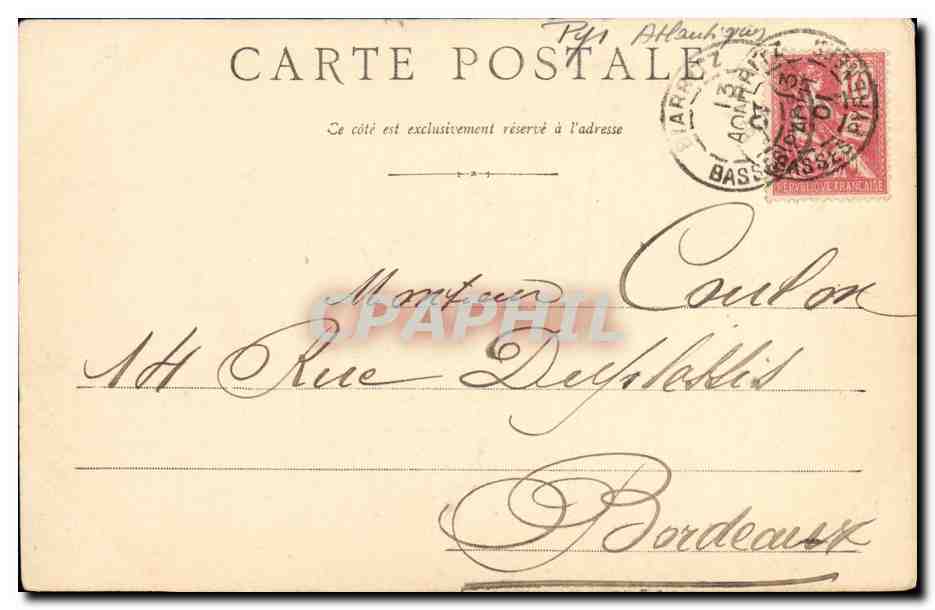 Pyr Atlantiques
CARTE POSTALE
Ce côté est exclusivement réservé à l'adresse
BIARRITZ
13
AOUT
01
BASSES PYRÉNÉES
10
REPUBLIQUE FRANÇAISE
Monsieur Coulon
CPAPHIL
14 Rue Duplessis
Bordeaux